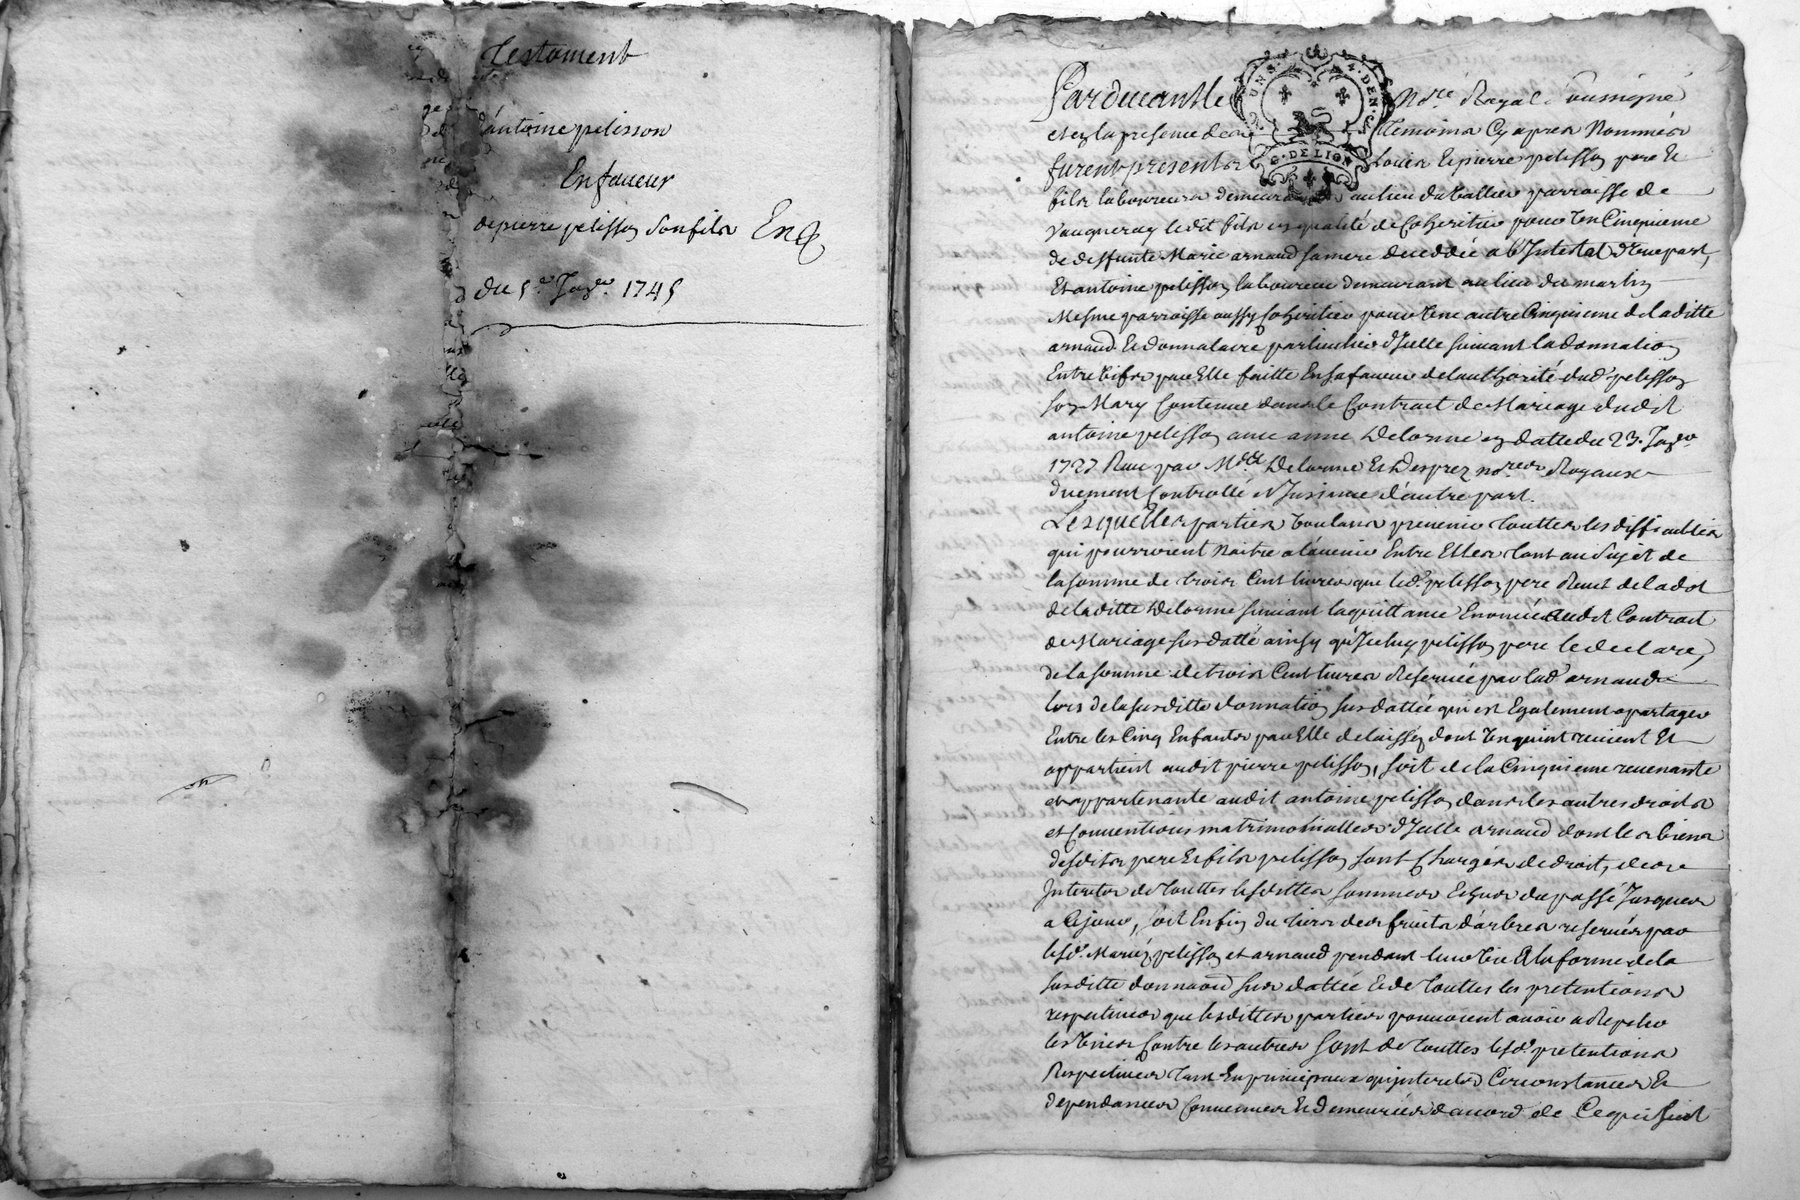 Testament
d'antoine pelisson
En faueur
de pierre pelisson son fils
du 5e Janer 1745
Pardeuant Le Nore Royal soussigné
et en la presence des temoins Cy apres Nommés
furent presents Louis Et pierre pelisson pere Et
fils laboureurs demeurants au lieu du parroisse de
Vaugneray ledit fils en qualité de Coheritier pour Un Cinquieme
de deffunte Marie arnaud sa mere decedée ab Intestat d'Une part,
Et antoine pelisson laboureur demeurant au lieu du martin
Mesme parroisse aussy Coheritier pour Une autre Cinquieme de laditte
arnaud Et donnataire particulier d'Icelle suiuant la donnation
Entre Vifs par Elle faitte En sa faueur de l'authorité dud. pelisson
son Mary Contenue dans le Contract de Mariage dudit
antoine pelisson auec anne Delorme en datte du 23. Janer
1727 Reçu par Delorme Et Desprez nores Royaux
duement Controllé et Insinué d'autre part.
Lesquelles parties Voulans preuenir touttes les difficultés
qui pourroient naitre a l'auenir Entre Elles tant au Sujet de
la somme de trois Cent liures que led. pelisson pere Reçut de la dot
de laditte Delorme suiuant la quittance Enoncée audit Contract
de Mariage sus datté ainsy qu'Iceluy pelisson pere le declare,
de la somme de trois Cent liures Reseruée par lad. arnaud
lors de la susditte donnation sus dattée qui est Egalement a partager
Entre les Cinq Enfants par Elle delaissés dont Un quint reuient Et
appartient audit pierre pelisson, soit de la Cinquieme reuenante
et appartenante audit antoine pelisson dans les autres droits
et Conuentions matrimonialles d'Icelle arnaud dont les biens
desdits pere Et fils pelisson sont Chargés de droit, des
Interets de touttes lesdittes sommes Echus du passé Jusques
a Ce jour, soit Enfin du tiers des fruits d'arbres reserués par
lesd. Mariés pelisson et arnaud pendant leur Vie a la forme de la
susditte donnaon sus dattée Et de touttes les pretentions
respectiues que lesdittes parties pouuoient auoir a Repeter
les Unes Contre les autres sont de touttes lesd. pretentions
Respectiues tant En principaux qu'interets Circonstances Et
dependances Conuenues Et demeurées d'acord de Ce qui suit